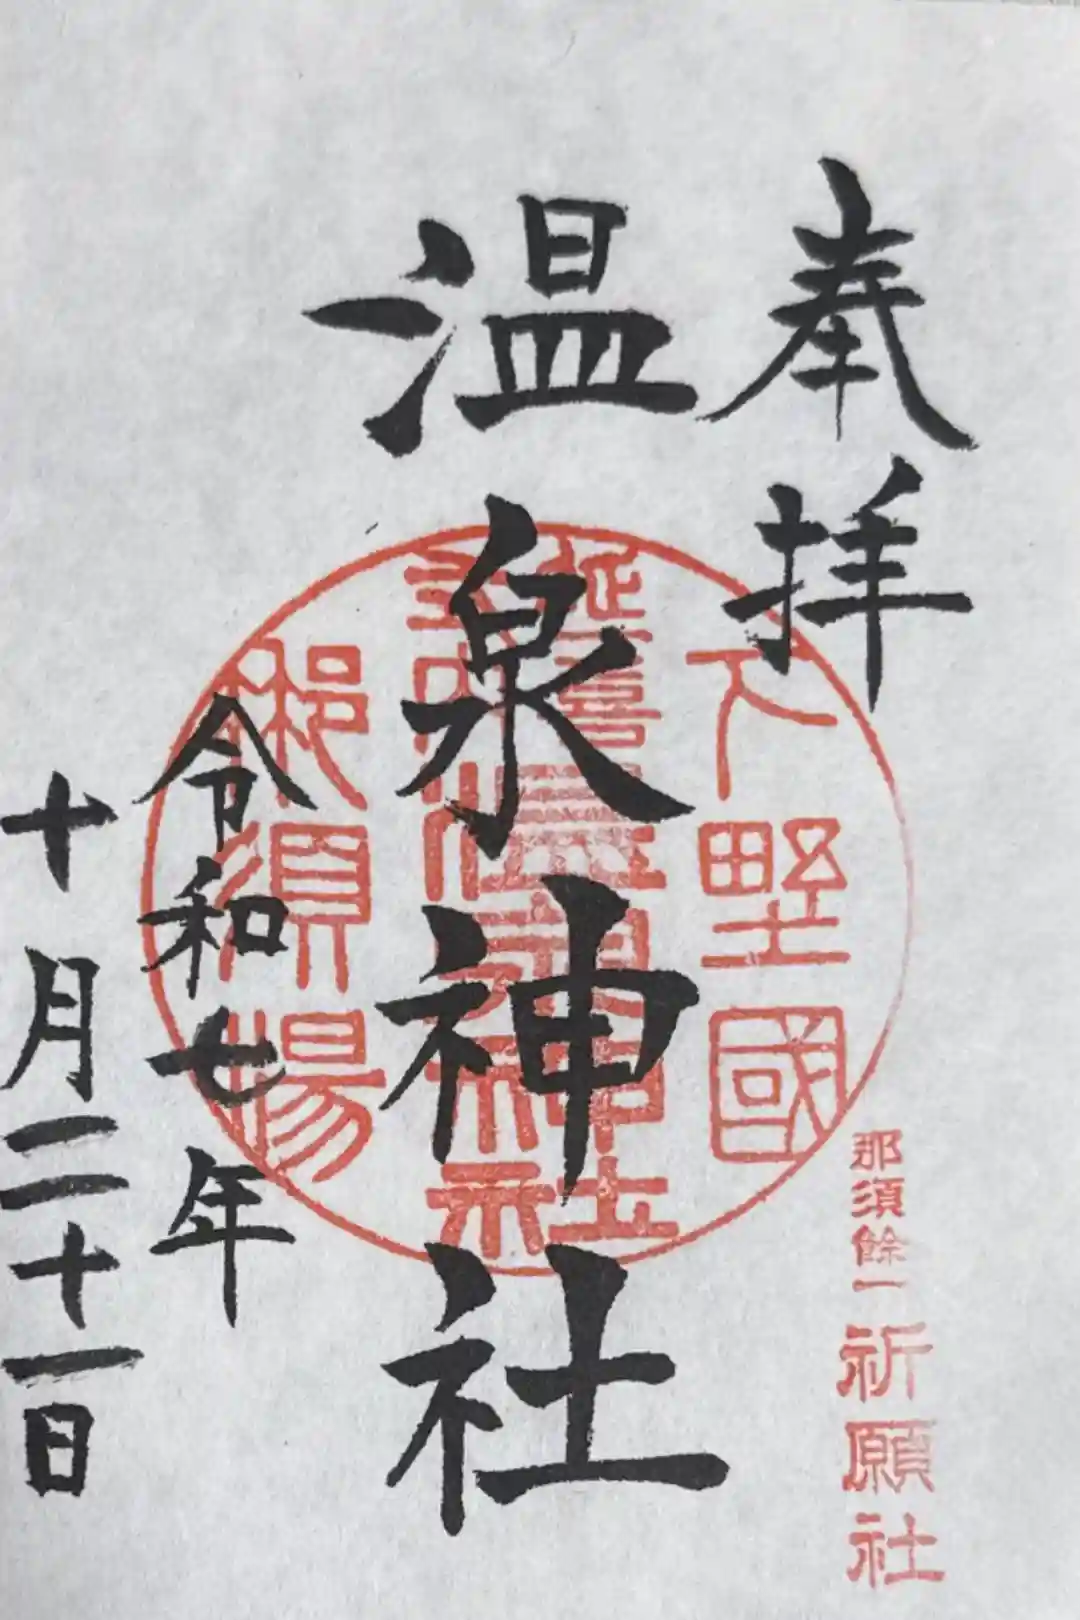 奉拝
温泉神社
令和七年
十月二十一日
下野國
延喜
式内
温泉神社
那須湯
那須餘一
祈願社